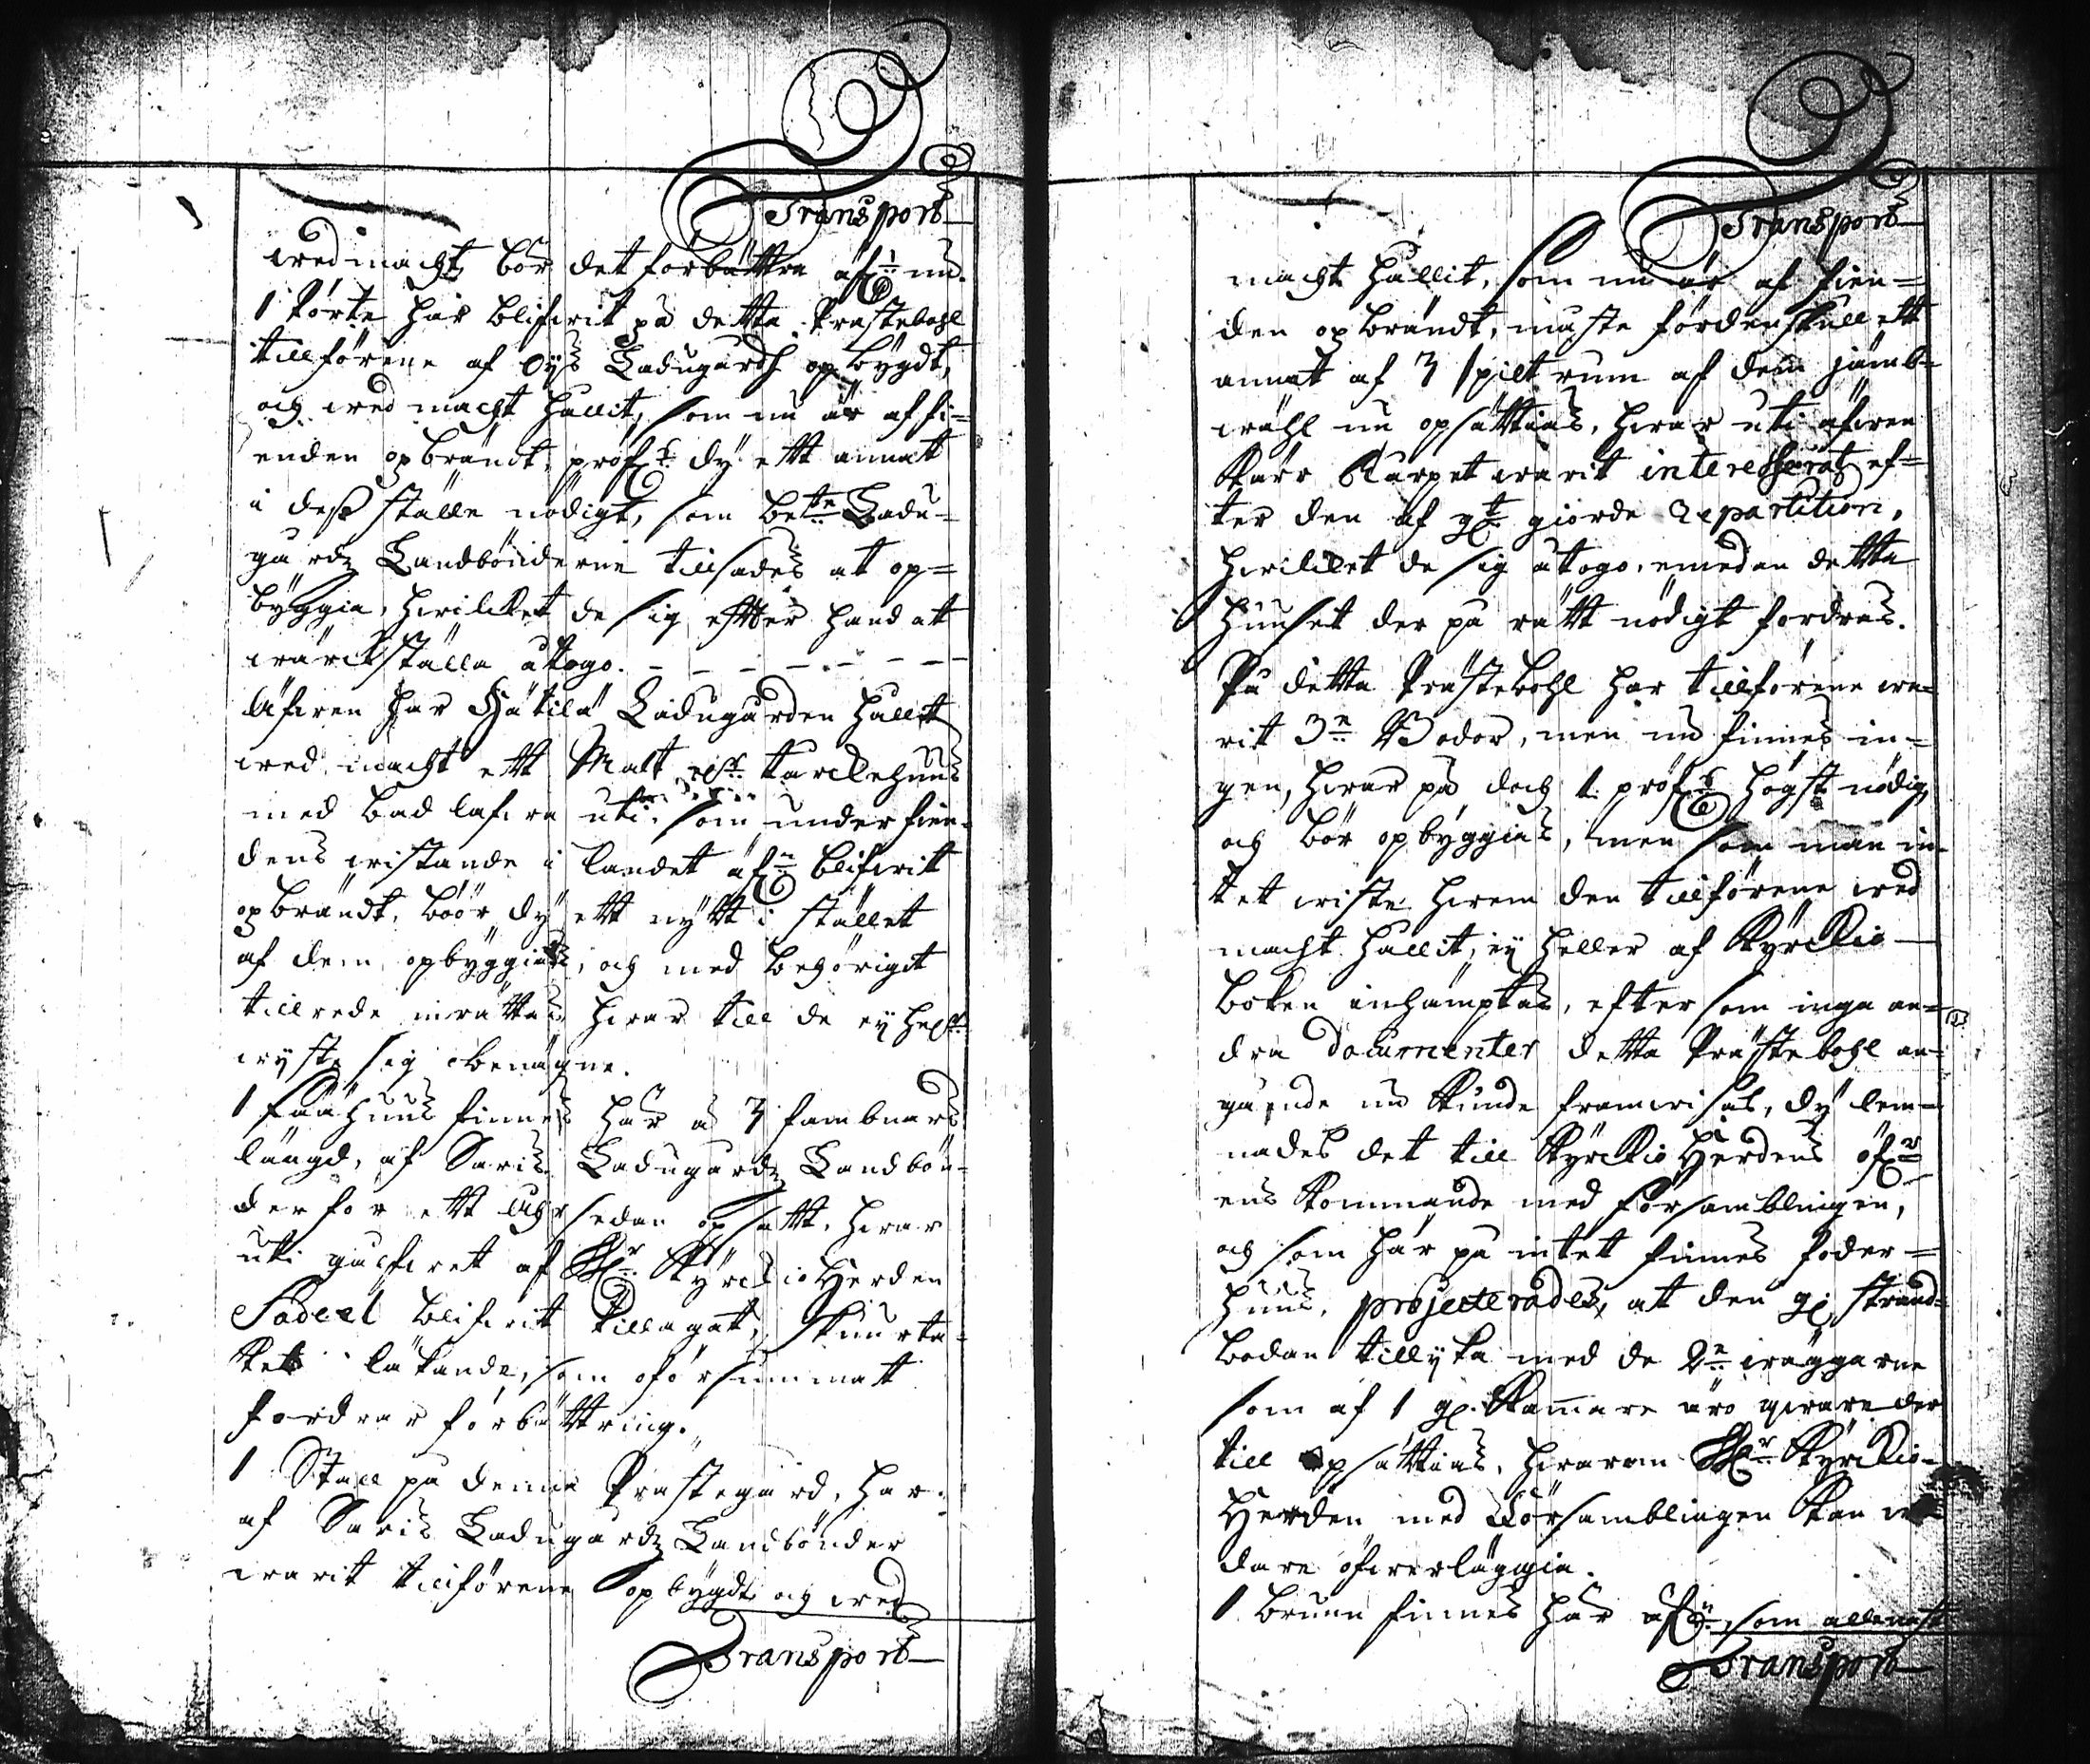 Transport
wedmacht, bör det förbättra äf:n nu.
1 Pörte har blifwit på detta Prästebohl
tillförene af Oys Ladugårdh opbygdt,
och wed macht hållit, som nu är af fi=
enden opbrändt, dy ett annat
i dess ställe nödigt, som bete Ladu=
gårdz Landbönderne tillsades at op=
byggia, hwilket de sig effter hand att
wärckställa åtogo.
Äfwen har Ladugården hållit
wed macht ett Malt torckehuus
med bad lafwa uti, som under fien=
dens wistande i landet äf:n blifwit
opbrändt, böör dy ett nytt i stället
af dem opbyggias, och med behörigit
tillrede inrättas hwar till de ey
wyste sig obenägne.
1 Fäähuus finnes här à 3 fambnars
längd, af Saris Ladugårdz Landbön=
der för ett åhr sedan opsatt, hwar
uti gålfwet af H:r Kyrckio Herden
Sadeel blifwit tillagat,
ket läkande, som oförsummatt
fordrar förbättring.
1 Stall på denne Prästegård, har
af Saris Ladugårdz Landbönder
warit tillförene opbygdt och wed
Transport
Transport
macht hållit, som nu är af fien=
den opbrändt, måste fördenskull ett
annat af 3 spiltrum af dem jämb=
wähl nu opsättias, hwar uti äfwen
warit interesserat ef=
ter den af giorde Repartition,
hwilket de sig åtogo, emedan detta
huuset der på rätt nödigt fordras.
På detta Prästebohl har tillförene wa=
rit 3:ne Bodor, men nu finnes in=
gen, hwar på doch 1 högst nödig,
och bör opbyggias, men som man in=
tet wiste hwem den tillförene wed
macht hållit, ey heller af Kyrckio
boken inhämptas, efter som inga an=
dra documenter detta Prästebohl an=
gående nu kunde framwisas, dy lem=
nades det till Kyrckio Herdens öf:r
ens kommande med Församblingen,
och som här på intet finnes foder=
huus, projecterades, at den gl. strand=
bodan tillijka med de 2:ne wäggarne
som af 1 gl. Kamare äro qwar der
till opsättias, hwarom H:r Kyrckio=
Herden med Församblingen kan wi=
dare öfwerläggia.
1 brunn finnes här äf:n, som allenast
Transport